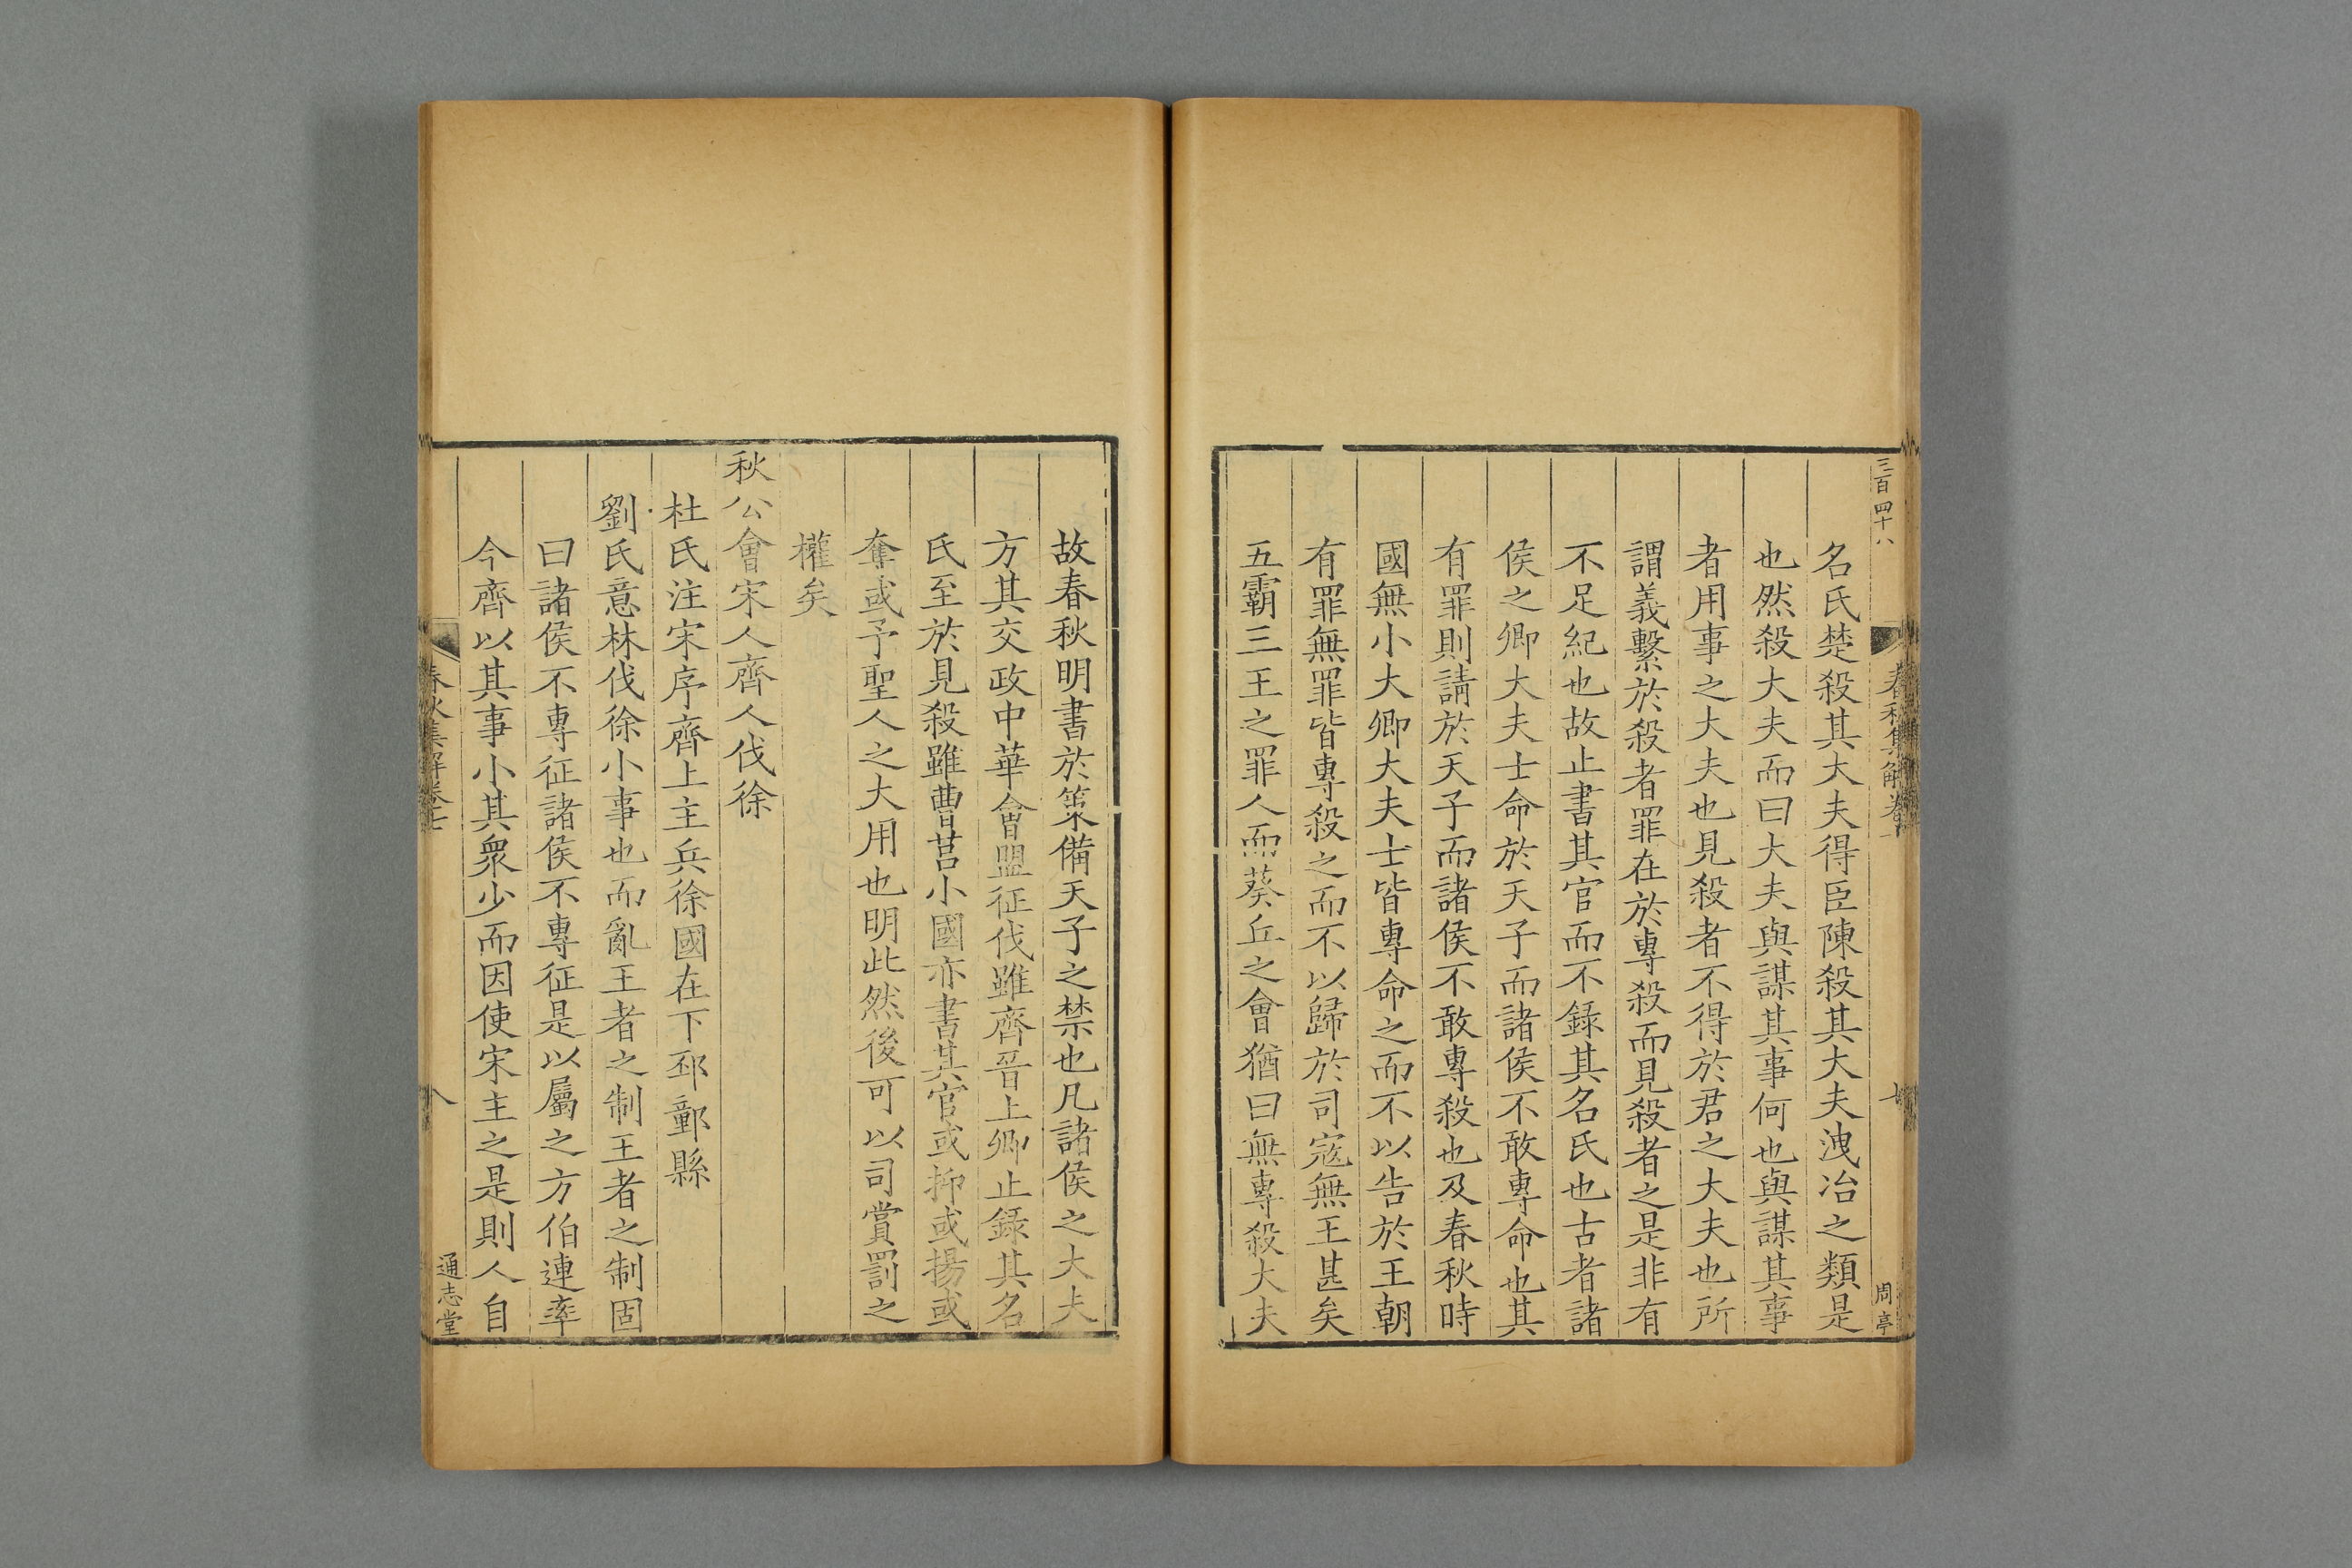 三百四十八
春秋集解卷
周亭
名氏楚殺其大夫得臣陳殺其大夫洩冶之類是
也然殺大夫而曰大夫與謀其事何也與謀其事
者用事之大夫也見殺者不得於君之大夫也所
謂義繫於殺者罪在於專殺而見殺者之是非有
不足紀也故止書其官而不錄其名氏也古者諸
侯之卿大夫士命於天子而諸侯不敢專命也其
有罪則請於天子而諸侯不敢專殺也及春秋時
國無小大卿大夫士皆專命之而不以告於王朝
有罪無罪皆專殺之而不以歸於司寇無王甚矣
五霸三王之罪人而葵丘之會猶曰無專殺大夫
故春秋明書於策備天子之禁也凡諸侯之大夫
方其交政中華會盟征伐雖齊晉上卿止錄其名
氏至於見殺雖曹莒小國亦書其官或抑或揚或
奪或予聖人之大用也明此然後可以司賞罰之
權矣
秋公會宋人齊人伐徐
杜氏注宋序齊上主兵徐國在下邳鄣縣
劉氏意林伐徐小事也而亂王者之制王者之制固
曰諸侯不專征諸侯不專征是以屬之方伯連率
今齊以其事小其衆少而因使宋主之是則人自
春秋集解卷七
八
通志堂